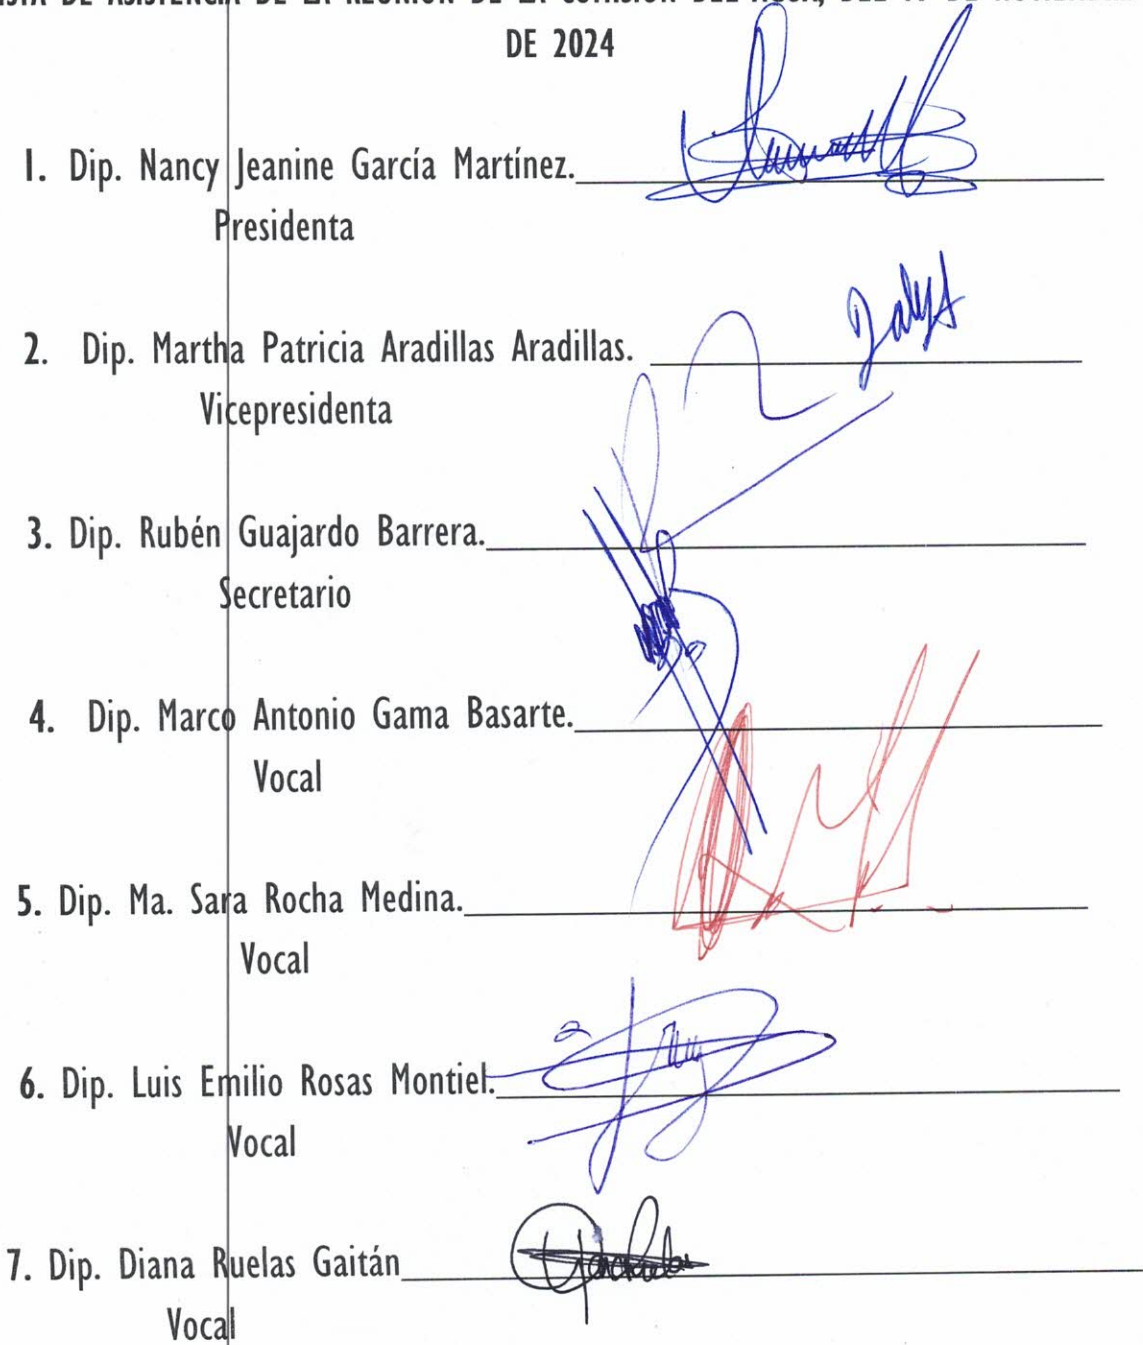 DE ASISTENCIA DE LA REUNIÓN DE LA COMISIÓN DEL AGUA, DEL DE NOVIEMBRE
DE 2024
1. Dip. Nancy Jeanine García Martínez.
Presidenta
2. Dip. Martha Patricia Aradillas Aradillas.
Vicepresidenta
3. Dip. Rubén Guajardo Barrera.
Secretario
4. Dip. Marco Antonio Gama Basarte.
Vocal
5. Dip. Ma. Sara Rocha Medina.
Vocal
6. Dip. Luis Emilio Rosas Montiel.
Vocal
7. Dip. Diana Ruelas Gaitán
Vocal